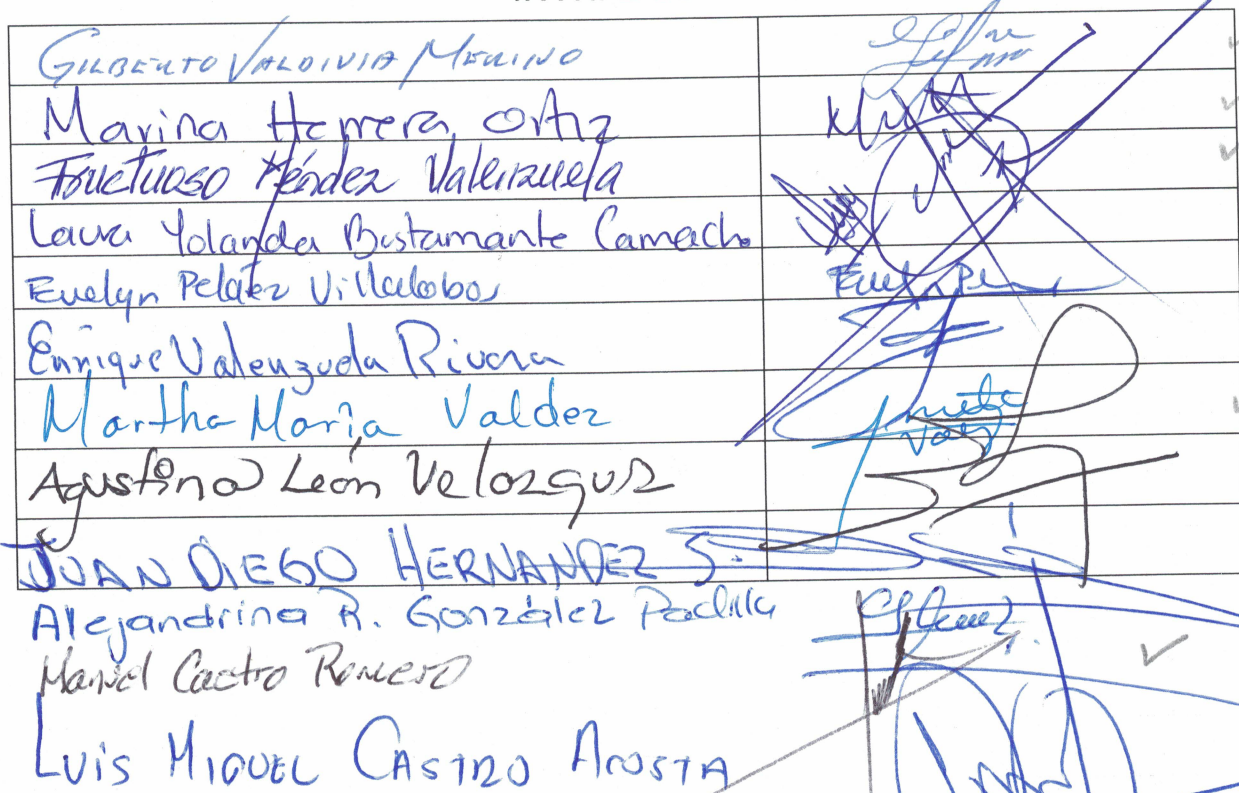 GILBERTO VALDIVIA MERINO
Marina Herrera Ortiz
Fructuoso Méndez Valenzuela
Laura Yolanda Bustamante Camacho
Evelyn Peláez Villalobos
Enrique Valenzuela Rivera
Martha María Valdez
Agustina León Velazquez
JUAN DIEGO HERNANDEZ S.
Alejandrina R. González Padilla
Manuel Castro Romero
LUIS MIGUEL CASTRO ACOSTA